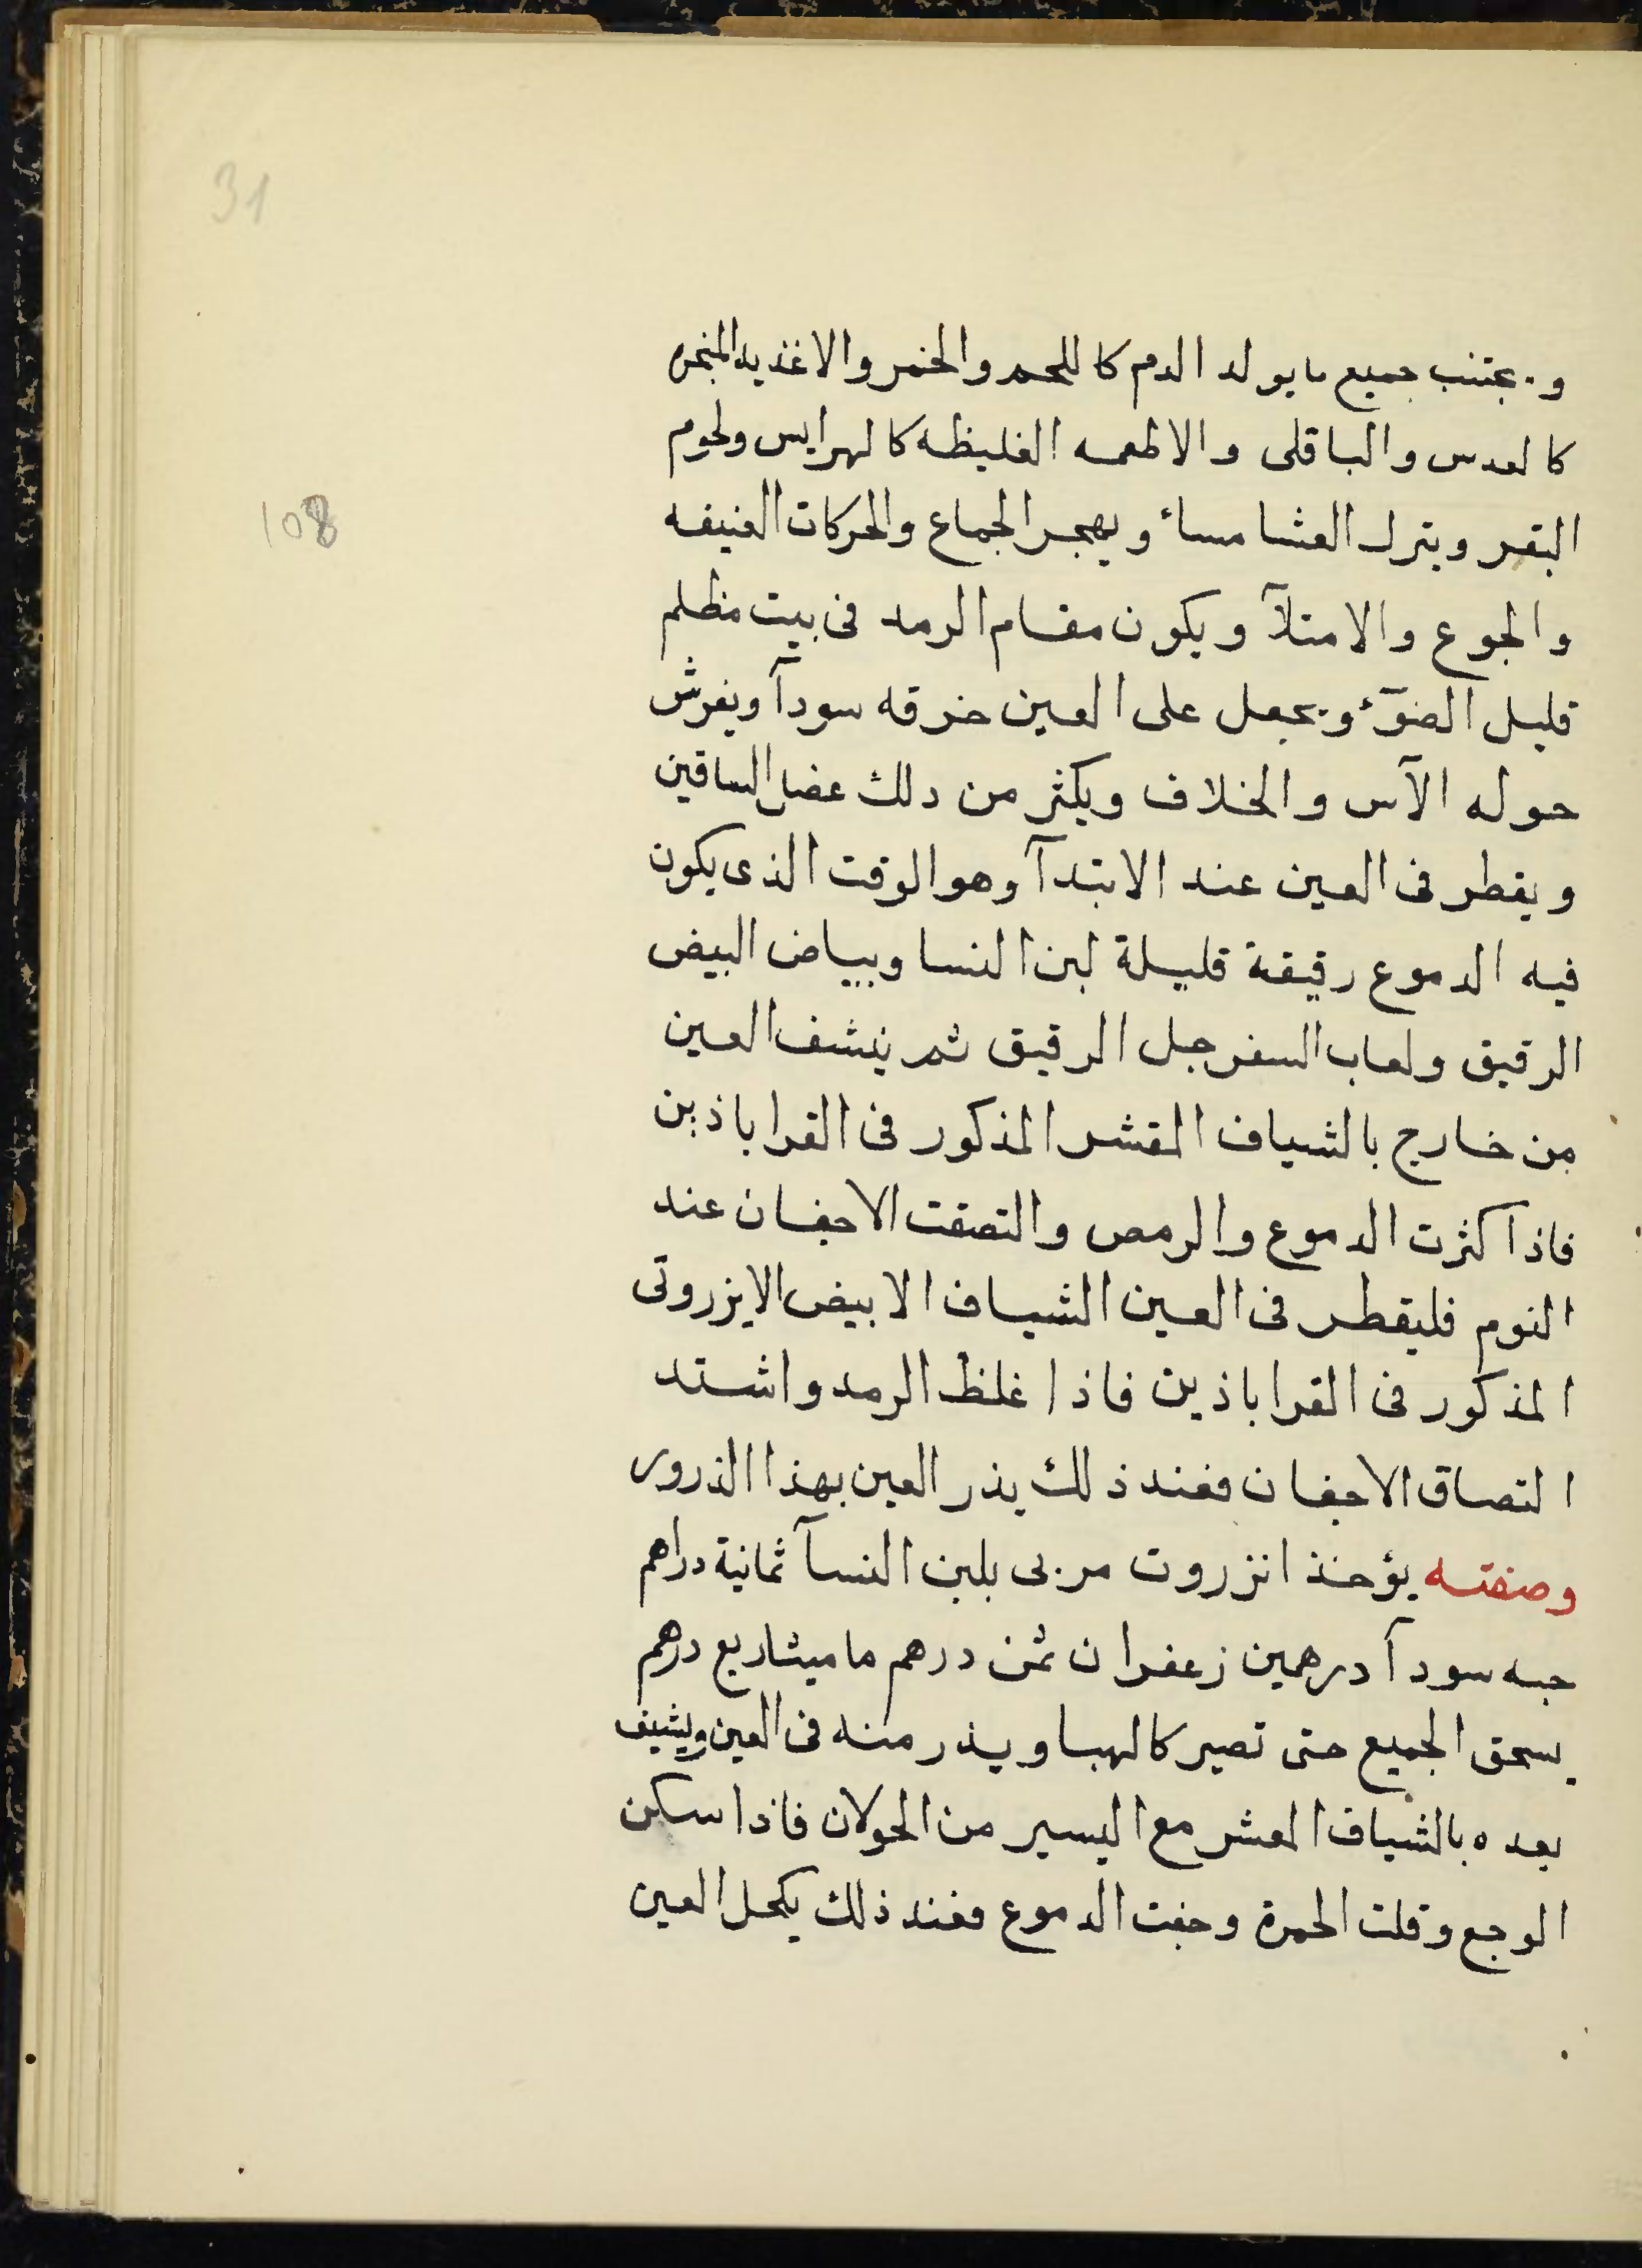 31
ويجتنب جميع ما يولد الدم كاللحم والخمر والاغذيه المبخره
كالعدس والباقلى والاطعمه الغليظه كالهرايس ولحوم
108
البقر ويترك العشا مساءً ويهجر الجماع والحركات العنيفه
والجوع والامتلآ ويكون مقام الرمد فى بيت مظلم
قليل الضوٓء ويجعل على العين خرقه سودآ ويفرش
حوله الآس والخلاف ويكثر من دلك عضل الساقين
ويقطر فى العين عند الابتدآ وهو الوقت الذى يكون
فيه الدموع رقيقة قليلة لبن النسا وبياض البيض
الرقيق ولعاب السفرجل الرقيق ثم ينشف العين
من خارج بالشياف المقشر المذكور فى القراباذين
فاذا كثرت الدموع والرمص والتصقت الاجفان عند
النوم فليقطر فى العين الشياف الابيض الايزروتى
المذكور فى القراباذين فاذا غلظ الرمد واشتد
التصاق الاجفان فعند ذلك يذر العين بهذا الذرور
وصفته يؤخذ انزروت مربى بلبن النسآ ثمانية دراهم
حبه سودآ درهمين زعفران ثمن درهم ماميثا ربع درهم
يسحق الجميع حتى تصير كالهبا ويذر منه فى العين ويشيف
بعده بالشياف المعشر مع اليسير من الحولان فاذا سكن
الوجع وقلت الحمرة وجفت الدموع فعند ذلك يكحل العين